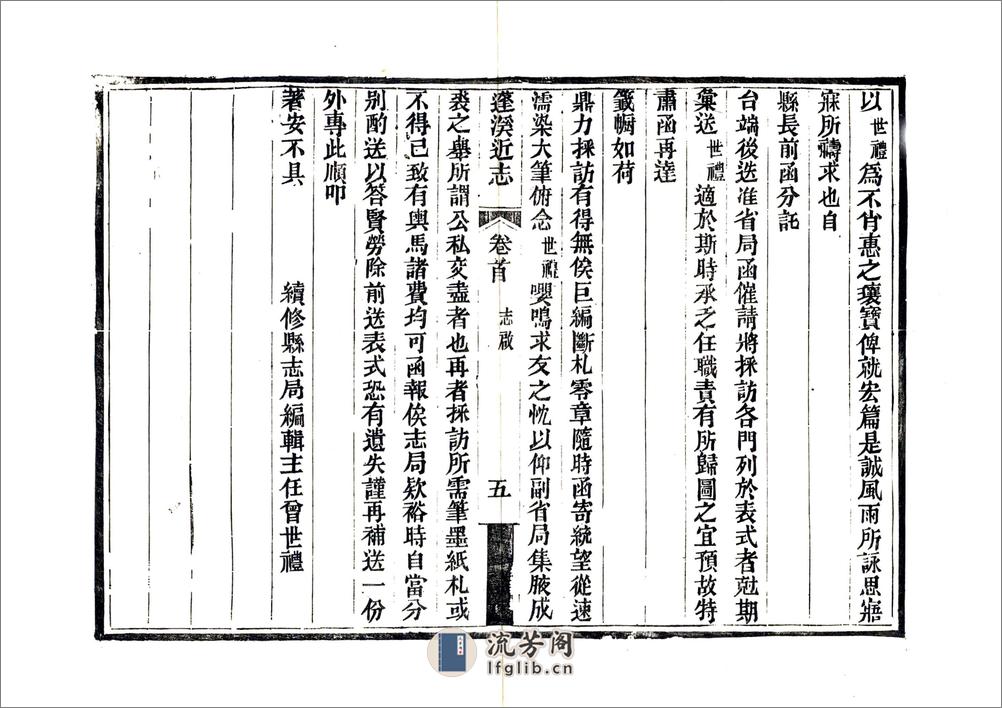 以世禮為不肖惠之瓌寶俾就宏篇是誠風雨所詠思寤
寐所禱求也自
縣長前函分託
台端後迭准省局函催請將採訪各門列於表式者尅期
彙送世禮適於斯時承乏任職責有所歸圖之宜預故特
肅函再達
籤幮如荷
鼎力採訪有得無俟巨編斷札零章隨時函寄統望從速
濡染大筆俯念世禮嚶鳴求友之忱以仰副省局集腋成
蓬溪近志
卷首
志啟
五
裘之舉所謂公私交盡者也再者採訪所需筆墨紙札或
不得已致有輿馬諸費均可函報俟志局欵裕時自當分
別酌送以答賢勞除前送表式恐有遺失謹再補送一份
外專此順叩
著安不具
續修縣志局編輯主任曾世禮
流芳阁
lfglib.cn